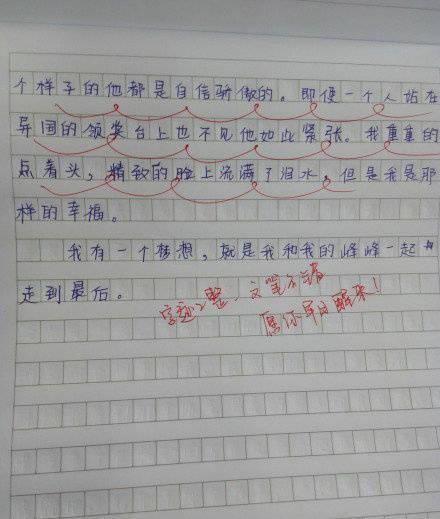 个样子的他都是自信骄傲的。即使一个人站在
异国的领奖台上也不见他如此紧张。我重重的
点着头，精致的脸上流满了泪水，但是我是那
样的幸福。
我有一个梦想，就是我和我的峰峰一起
走到最后。
字迹工整，文笔不错
愿你早日醒来！